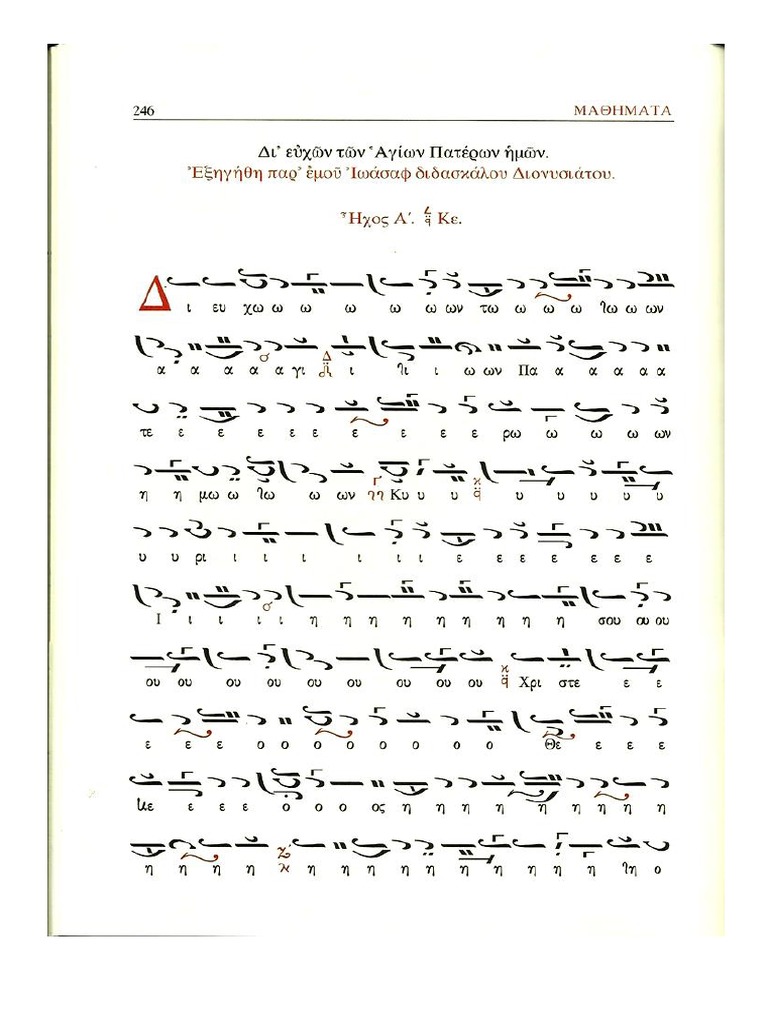 246 ΜΑΘΗΜΑΤΑ
Δι' εὐχῶν τῶν Ἁγίων Πατέρων ἡμῶν.
Ἐξηγήθη παρ' ἐμοῦ Ἰωάσαφ διδασκάλου Διονυσιάτου.
Ἦχος Α΄. Κε.
Δ ι ευ χω ω ω ω ω ω ω ων τω ω ω ω ω ω ων
α α α α α γι ι ι ι ω ων Πα α α α α α
τε ε ε ε ε ε ε ε ε ε ε ρω ω ω ω ων
η η μω ω ω ω ων Κυ υ υ υ υ υ υ υ
υ υ ρι ι ι ι ι ι ι ε ε ε ε ε ε ε
Ι ι ι ι ι η η η η η η η η η σου ου ου
ου ου ου ου ου ου ου ου ου Χρι στε ε ε
ε ε ε ο ο ο ο ο ο ο ο Θε ε ε ε
κε ε ε ε ο ο ο ος η η η η η η η η η
η η η η η η η η η η η η η η η η ο